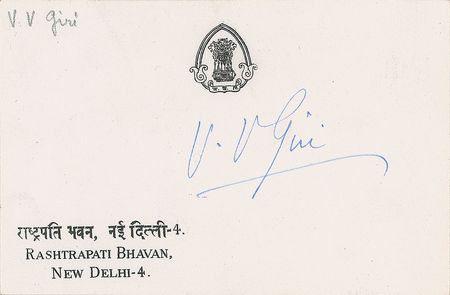 V. V Giri
V. V Giri
राष्ट्रपति भवन, नई दिल्ली-4.
RASHTRAPATI BHAVAN,
NEW DELHI-4.